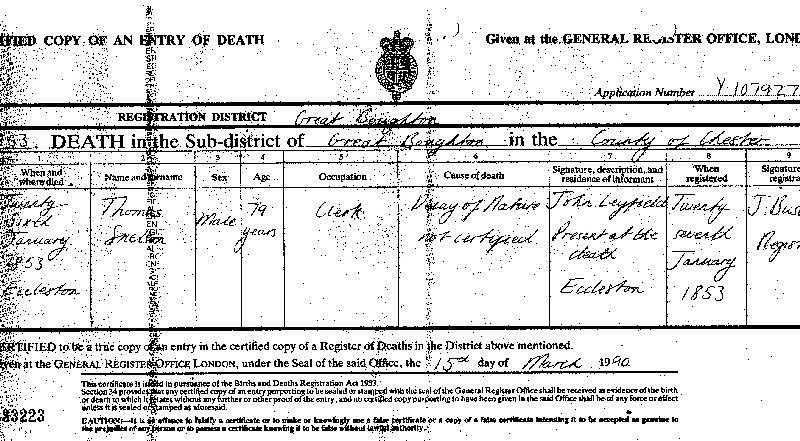 TIFIED COPY OF AN ENTRY OF DEATH
Given at the GENERAL REGISTER OFFICE, LOND
Application Number Y 107927
REGISTRATION DISTRICT Great Boughton
53 DEATH in the Sub-district of Great Boughton in the County of Chester
1 2 3 4 5 6 7 8 9
When and where died Name and surname Sex Age Occupation Cause of death Signature, description, and residence of informant When registered Signature registra
Twenty sixth January 1853 Eccleston
Thomas
Male
79 years
Clerk
Decay of Nature not certified
John Leyfield Present at the death Eccleston
Twenty seventh January 1853
J. Bus
Regis
ERTIFIED to be a true copy of an entry in the certified copy of a Register of Deaths in the District above mentioned.
ven at the GENERAL REGISTER OFFICE LONDON, under the Seal of the said Office, the 15th day of March 1990
This certificate is issued in pursuance of the Births and Deaths Registration Act 1953.
Section 34 provides that any certified copy of an entry purporting to be sealed or stamped with the seal of the General Register Office shall be received as evidence of the birth
or death to which it relates without any further or other proof of the entry, and no certified copy purporting to have been given in the said Office shall be of any force or effect
unless it is sealed or stamped as aforesaid.
23223
CAUTION:—It is an offence to falsify a certificate or to make or knowingly use a false certificate or a copy of a false certificate intending it to be accepted as genuine to
the prejudice of any person or to possess a certificate knowing it to be false without lawful authority.